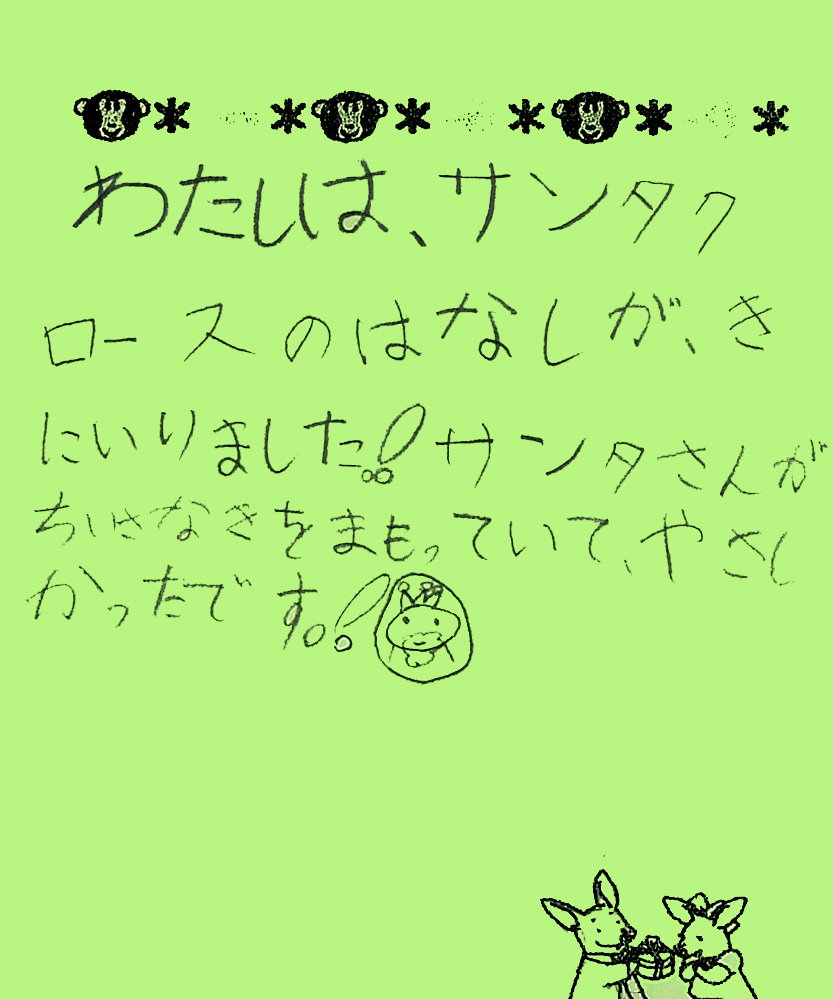 わたしは、サンタク
ロースのはなしが、き
にいりました!。サンタさんが
ちいさなきをまもっていて、やさし
かったです。!